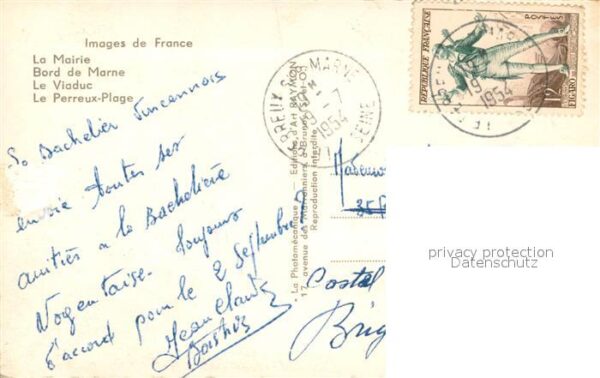 Images de France
La Mairie
Bord de Marne
Le Viaduc
Le Perreux-Plage
Le Bachelier Vincennois
envoie toutes ses
amitiés a la Bachelière
Nogentaise. Toujours
d'accord pour le 2 Septembre
Jean Claude
La Photomécanique - Editions d'Art RAYMON
17, avenue des Marronniers à Brunoy, S.-et-O.
Reproduction interdite
PERREUX MARNE
9 -7
1954
SEINE
REPUBLIQUE FRANÇAISE
POSTES
12F
FIGARO
1954
Mademoi
35
Costal
Brig
privacy protection
Datenschutz